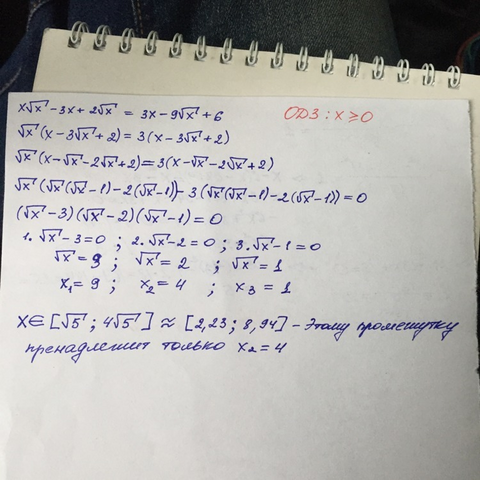 x√x - 3x + 2√x = 3x - 9√x + 6 ОДЗ: x ≥ 0
√x (x - 3√x + 2) = 3(x - 3√x + 2)
√x (x - √x - 2√x + 2) = 3(x - √x - 2√x + 2)
√x (√x (√x - 1) - 2(√x - 1)) - 3(√x (√x - 1) - 2(√x - 1)) = 0
(√x - 3)(√x - 2)(√x - 1) = 0
1. √x - 3 = 0 ; 2. √x - 2 = 0 ; 3. √x - 1 = 0
√x = 3 ; √x = 2 ; √x = 1
x₁ = 9 ; x₂ = 4 ; x₃ = 1
x ∈ [√5 ; 4√5] ≈ [2,23 ; 8,94] - Этому промежутку
пренадлежит только x₂ = 4